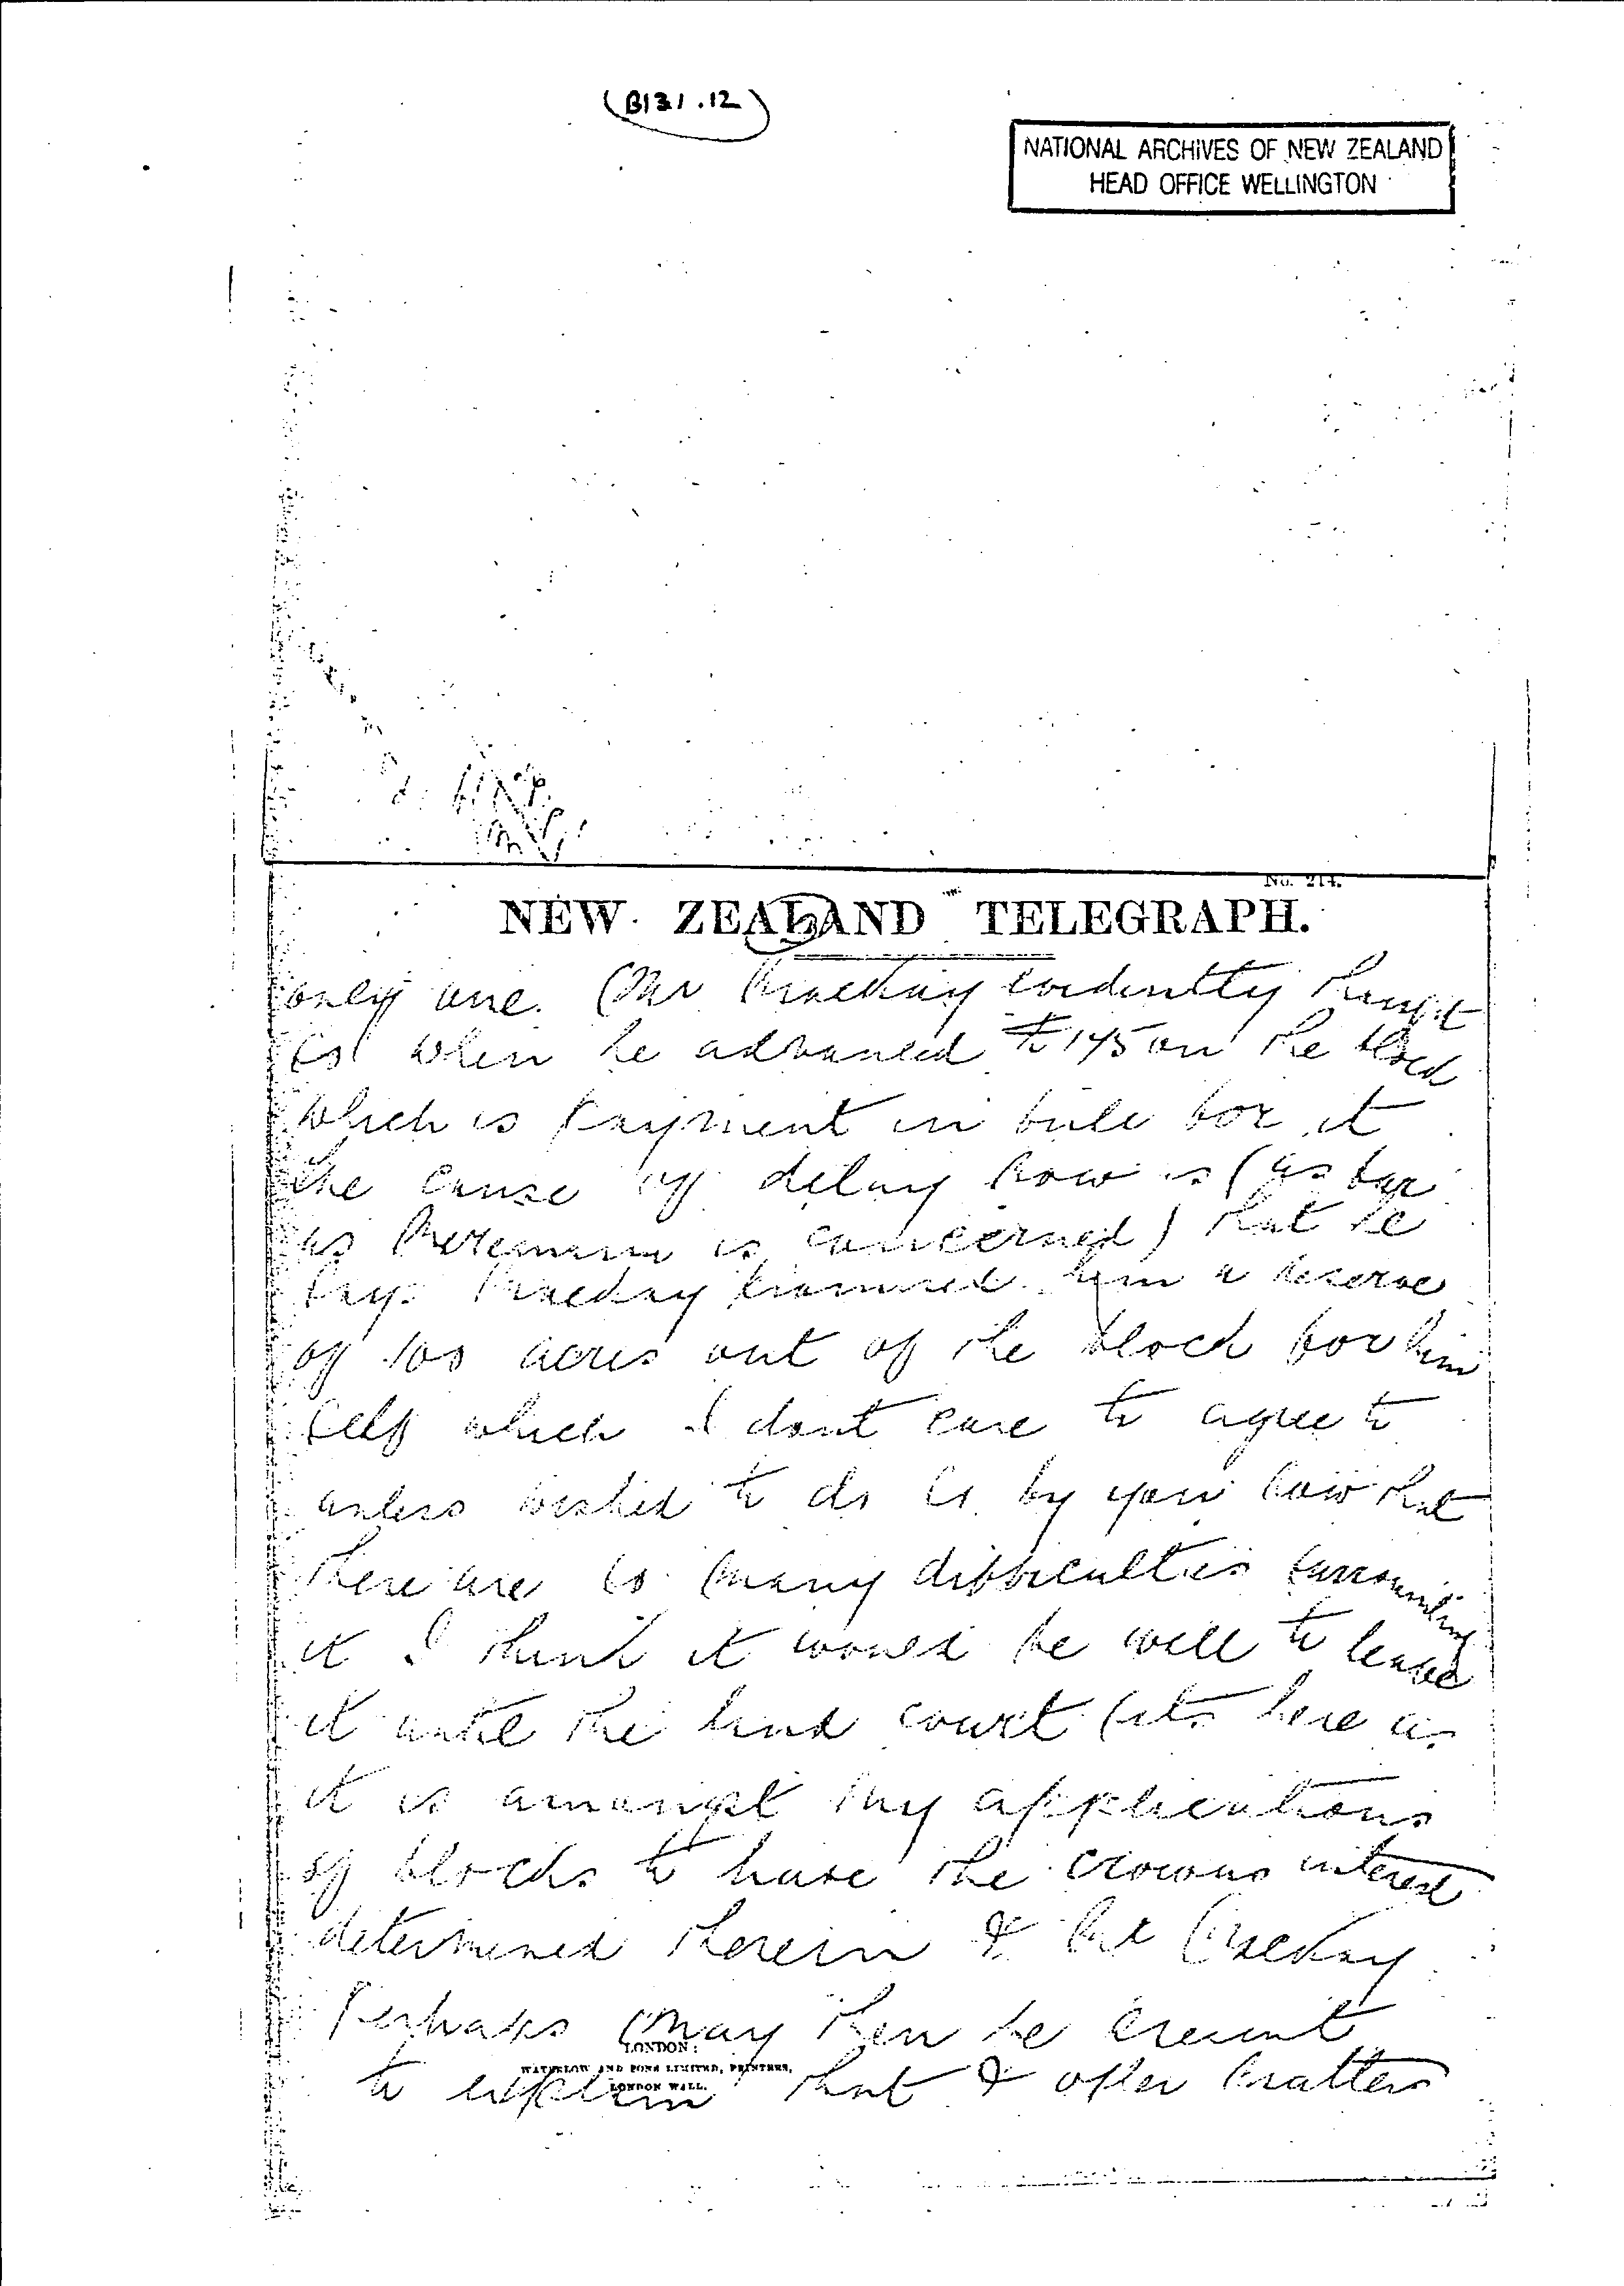 (B131.12)
NATIONAL ARCHIVES OF NEW ZEALAND
HEAD OFFICE WELLINGTON
No. 214.
NEW ZEALAND TELEGRAPH.
only one. Mr Mackay evidently thought
so when he advanced £145 on the block
which is payment in full for it
the cause of delay now is (as far
as is concerned) that he
says Mackay promised him a reserve
of 100 acres out of the block for him
self which I dont care to agree to
unless wished to do so by you now that
there are so many difficulties surrounding
it I think it would be well to leave
it until the land court sits here as
it is amongst my applications
of blocks to have the crowns interest
determined therein & Mr Mackay
perhaps may then be present
to explain that & other matters
LONDON:
WATERLOW AND SONS LIMITED, PRINTERS,
LONDON WALL.